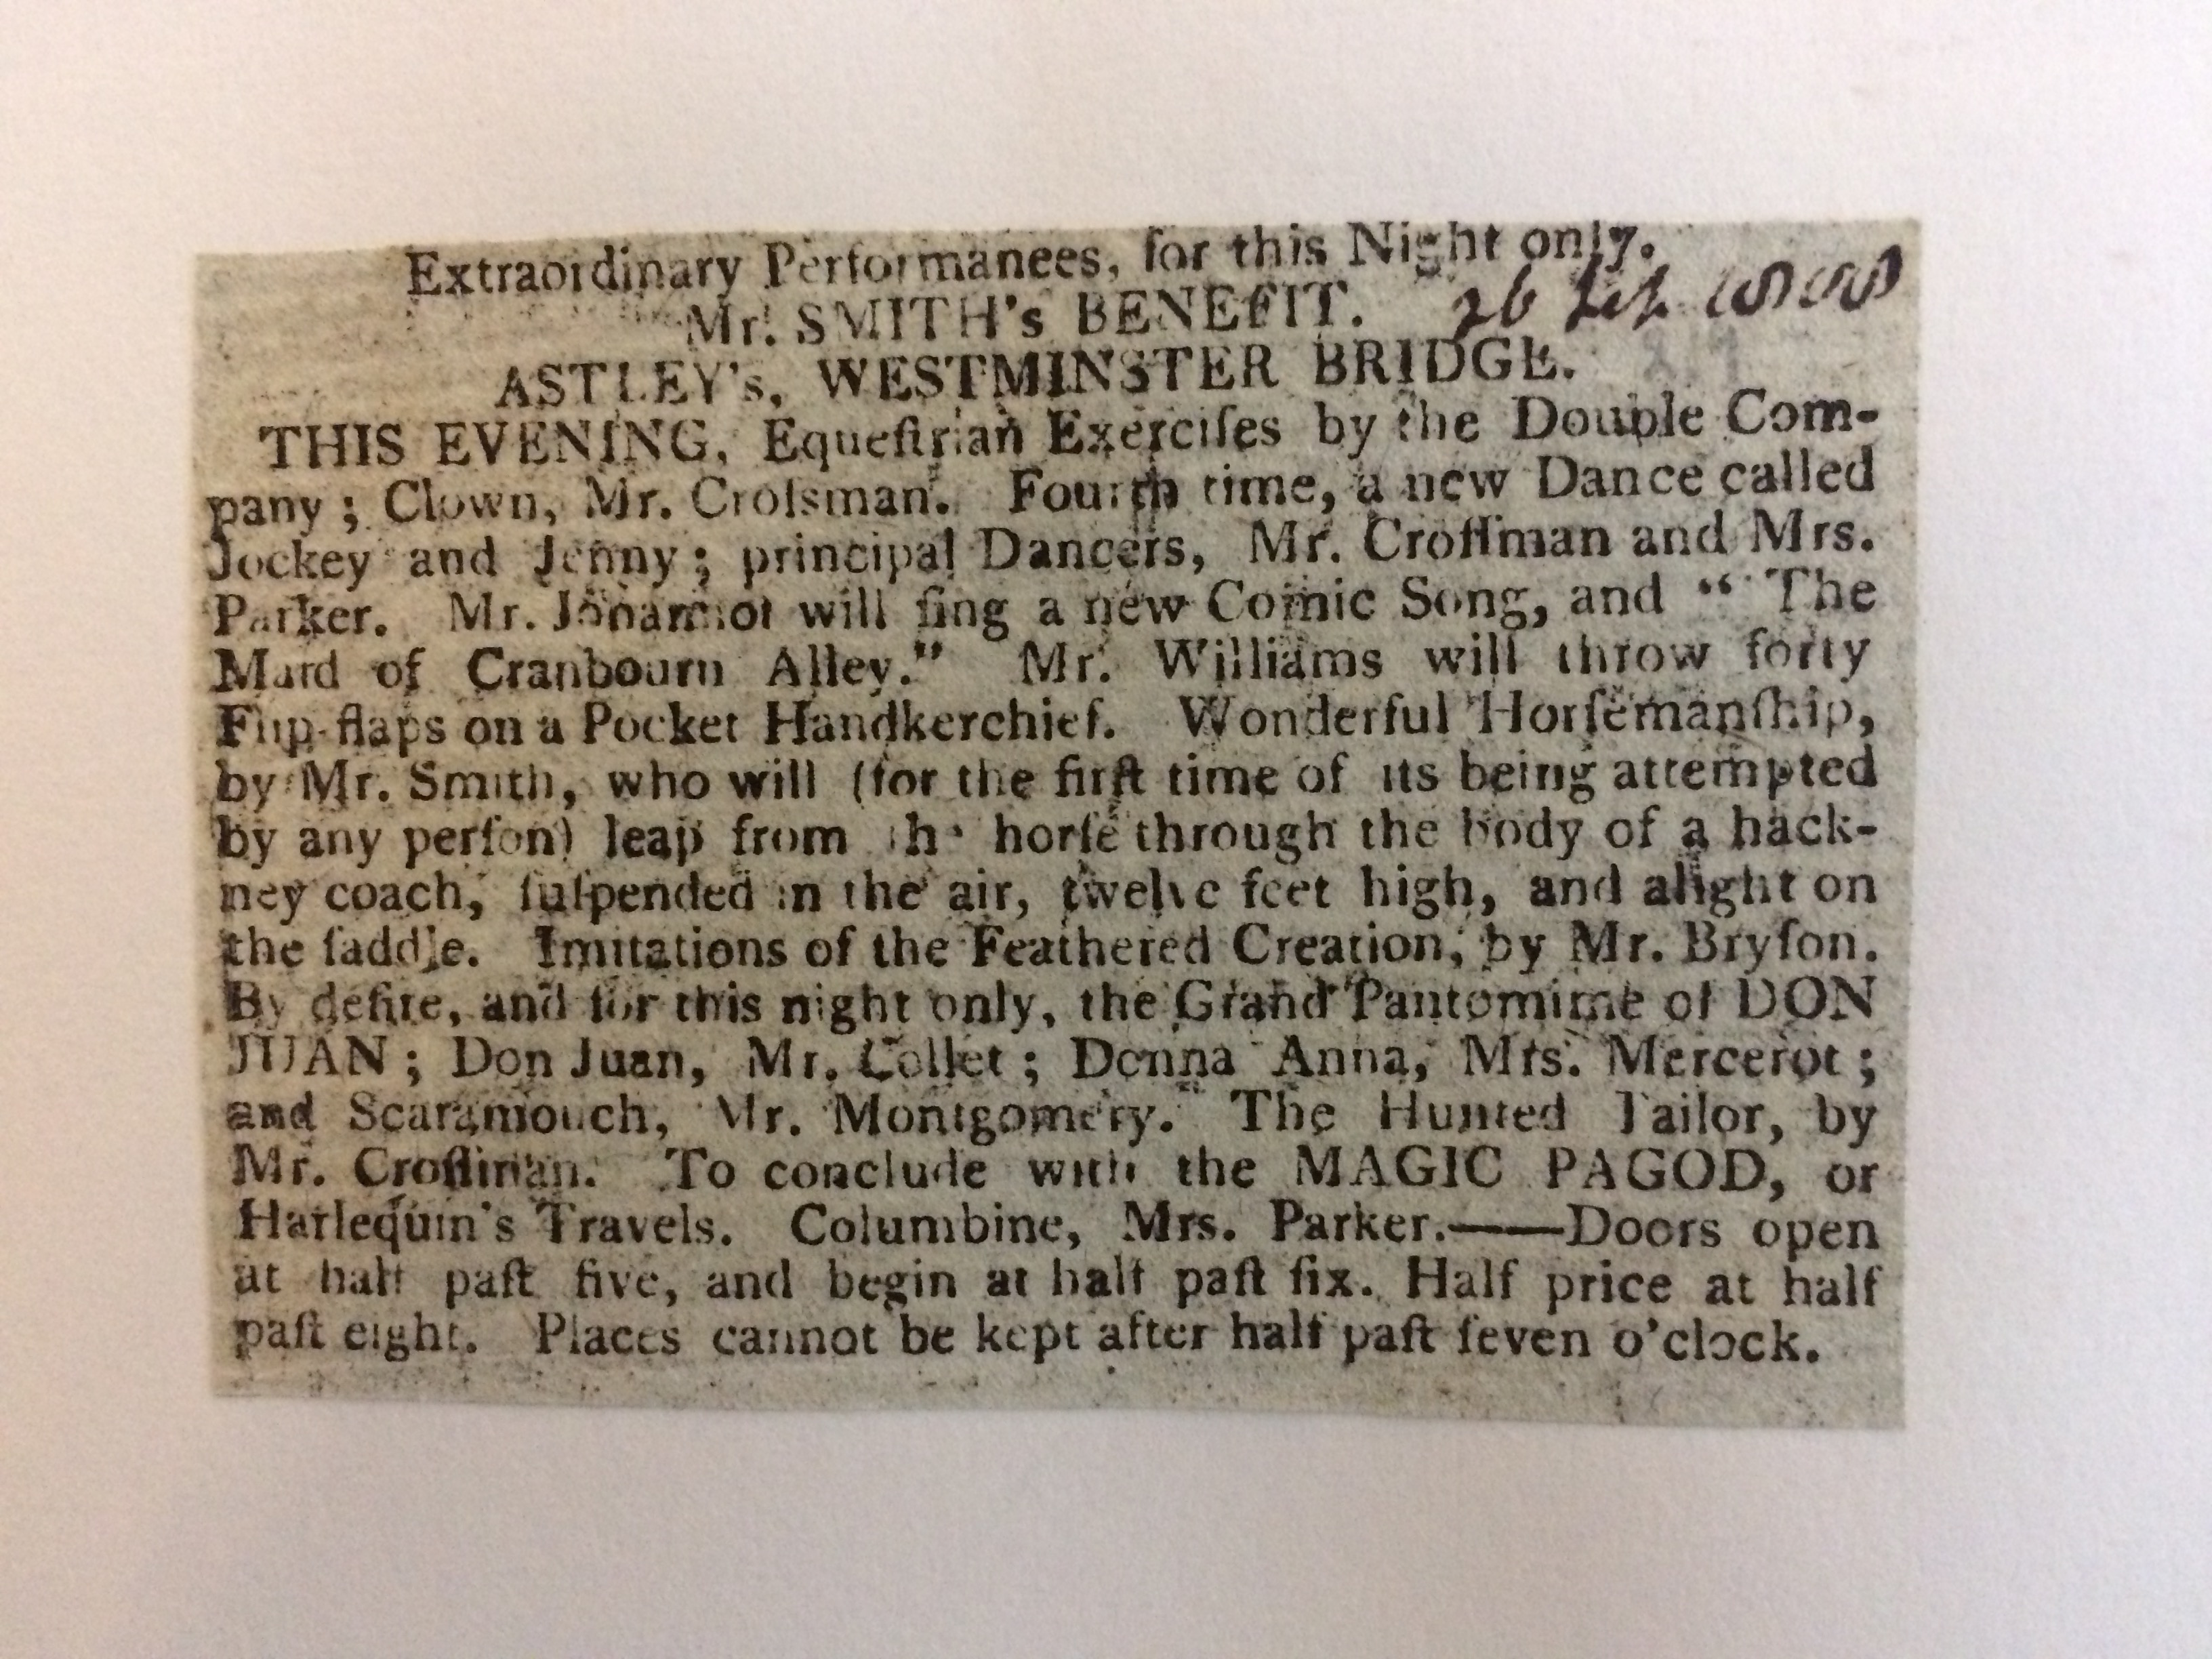 Extraordinary Performanees, for this Night only.
Mr. SMITH's BENEFIT. 26 Sep
ASTLEY's, WESTMINSTER BRIDGE.
THIS EVENING, Equeſtrian Exerciſes by the Double Com-
pany; Clown, Mr. Croſsman. Fourth time, a new Dance called
Jockey and Jenny; principal Dancers, Mr. Croſſman and Mrs.
Parker. Mr. Johannot will ſing a new Comic Song, and "The
Maid of Cranbourn Alley." Mr. Williams will throw forty
Flip-flaps on a Pocket Handkerchief. Wonderful Horſemanſhip,
by Mr. Smith, who will (for the firſt time of its being attempted
by any perſon) leap from the horſe through the body of a hack-
ney coach, ſuſpended in the air, twelve feet high, and alight on
the ſaddle. Imitations of the Feathered Creation, by Mr. Bryſon.
By deſire, and for this night only, the Grand Pantomime of DON
JUAN; Don Juan, Mr. Collet; Donna Anna, Mrs. Mercerot;
and Scaramouch, Mr. Montgomery. The Hunted Tailor, by
Mr. Croſſman. To conclude with the MAGIC PAGOD, or
Harlequin's Travels. Columbine, Mrs. Parker.——Doors open
at half paſt five, and begin at half paſt ſix. Half price at half
paſt eight. Places cannot be kept after half paſt ſeven o'clock.